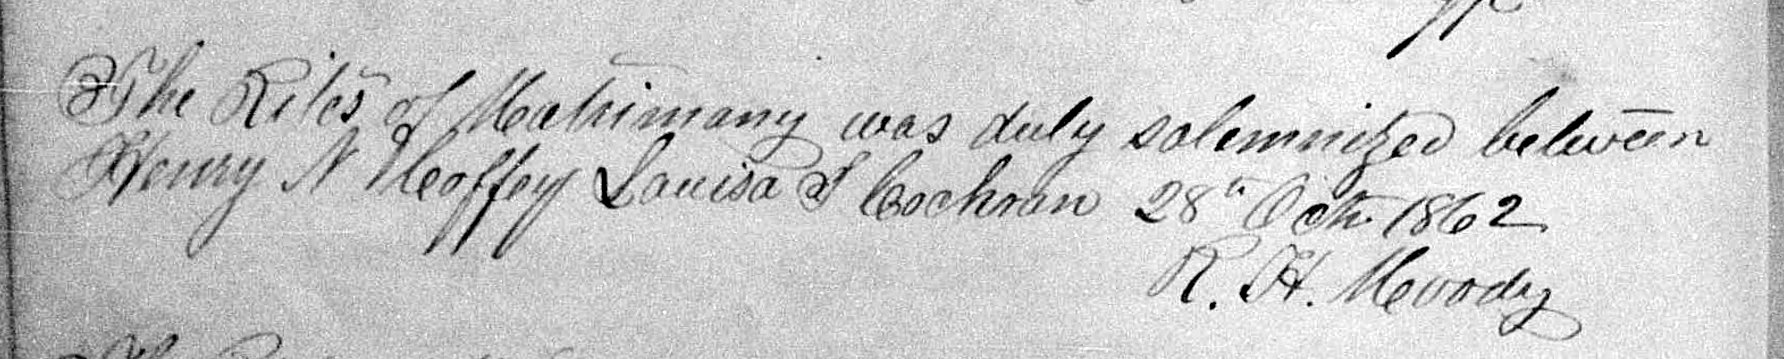 The Rites of Matrimony was duly solemnized between
Henry N Heaffey Louisa J Cochran 28th Oct. 1862
R. H. Moody